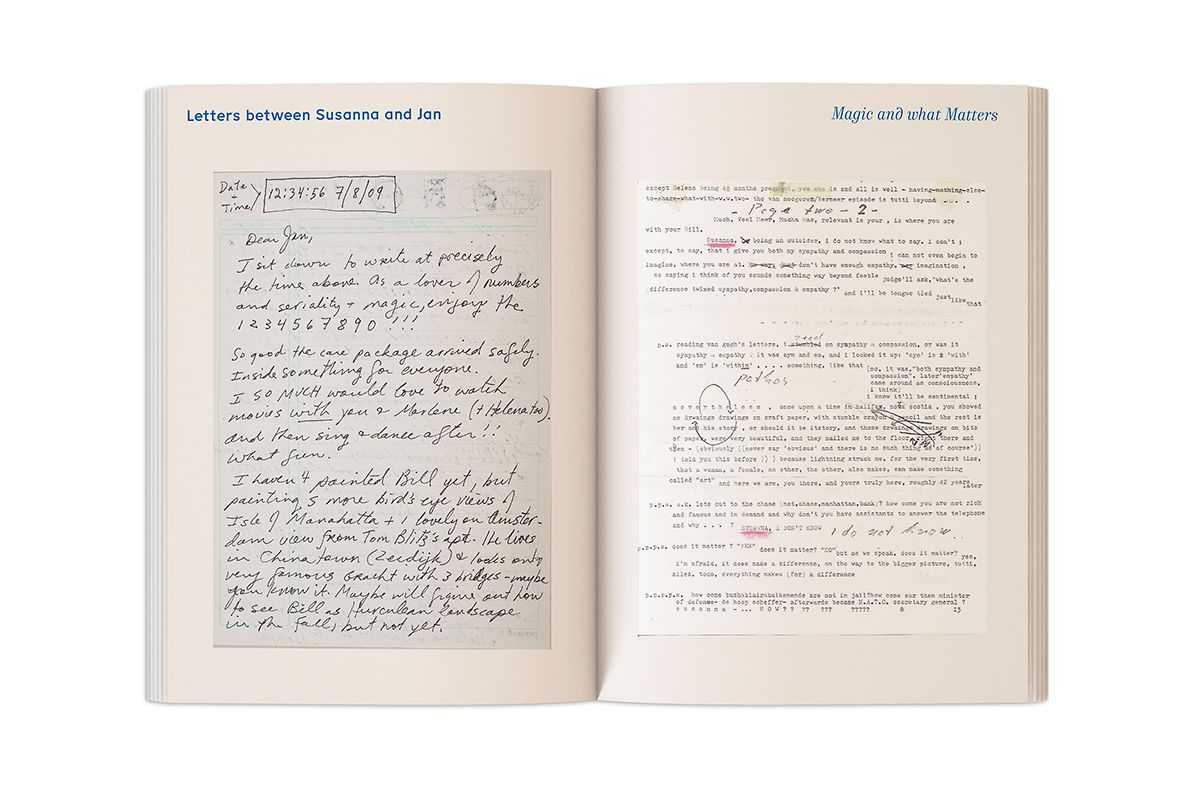 Letters between Susanna and Jan
Date
+
Time
12:34:56 7/8/09
Dear Jan,
I sit down to write at precisely
the time above. As a lover of numbers
and seriality + magic, enjoy the
1 2 3 4 5 6 7 8 9 0 !!!
So good the care package arrived safely.
Inside something for everyone.
I SO MUCH would love to watch
movies with you & Marlene (+ Helena too).
and then sing & dance after!!
What fun.
I haven't painted Bill yet, but
painting 5 more bird's eye views of
Isle of Manahatta + 1 lovely on Amster-
dam view from Tom Blitz's apt. He lives
in Chinatown (Zeedijk) & looks onto
very famous Gracht with 3 bridges - maybe
you know it. Maybe will figure out how
to see Bill as Herculean landscape
in the fall, but not yet.
Magic and what Matters
except Helena being 42 months yes she is and all is well - having-nothing-else-
to-share-what-with-w.w.two- the van episode is tutti beyond
- Page two - 2 -
Much, Veel Meer, Mucha Mas, relevant is your , is where you are
with your Bill.
Susanna, being an outsider, i do not know what to say. i can't ;
except, to say, that i give you both my sympathy and compassion i can not even begin to
imagine, where you are at. don't have enough empathy, imagination .
so saying i think of you sounds something way beyond feeble judge'll ask,'what's the
difference twixed sympathy,compassion & empathy ?' and i'll be tongue tied just like that
p.s. reading van gogh's letters, i stumbled read on sympathy & compassion, or was it
sympathy & empathy ? it was sym and em, and i looked it up: 'sym' is = 'with'
and 'em' is 'within' . . . . something, like that
pathos
[no, it was,"both sympathy and
compassion". later'empathy'
came around as consciousness,
i think;
i know it'll be sentimental ;
n e v e r t h e l e s s , once upon a time in halifax, nova scotia , you showed
me drawings on craft paper, with stumble crayon & pencil and the rest is
her and his story , or should it be itstory, and those drawings on bits
of paper, were very beautiful, and they nailed me to the floor there and
then - (obviously ((never say 'obvious' and there is no such thing as'of course'))
i told you this before )) ) because lightning struck me, for the very first time,
that a woman, a female, an other, the other, also makes, can make something
called "art" and here we are, you there, and yours truly here, roughly 42 years later
lets cut to the chase (not,chase,manhattan,bank)? how come you are not rich
and famous and in demand and why don't you have assistants to answer the telephone
and why . . . ? SUSANNA, I DON'T KNOW I do not know
p.p.p.s. does it matter ? "YES" does it matter? "NO" but as we speak, does it matter? yes,
i'm afraid, it does make a difference, on the way to the bigger picture, tutti,
alles, todo, everything makes (for) a difference
how come are not in jail?how come our then minister
of defense- de hoop scheffer- afterwards became N.A.T.O. secretary general ?
s u s a n n a - ... H O W ? ? ?? ??? ????? & 15